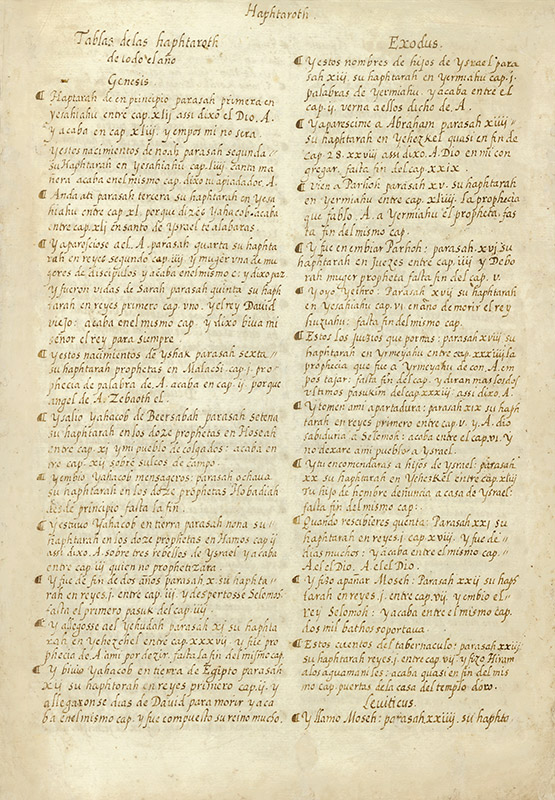 Haphtaroth.
Tablas de las haphtaroth
de todo el año
Genesis
¶ Haptarah de en principio parasah primera en
yesahiahu entre cap. xlij assi dixo el Dio. A.
y acaba en cap xliij. y empos mi no sera.
yestos nacimientos de noah parasah segunda
su Haphtarah en yesahiahu cap. liiij canta ma
ñera acaba en el mismo cap. dixo tu apiadador A.
¶ Anda ati parasah tercera su haphtarah en yesa
hiahu entre cap. xl. porque dizes yahacob. acaba
entre cap. xlj en santo de ysrael te alabaras
¶ Y aparesciose a el. A. parasah quarta su haphta
rah en reyes segundo cap. iiij. y muger una de mu
geres de discipulos y acaba en el mismo c: y dixo paz
¶ Y fueron vidas de Sarah parasah quinta su haph
tarah en reyes primero cap. vno. y el rey David
viejo: acaba en el mismo cap. y dixo biva mi
señor el rey para siempre
¶ yestos nacimientos de yshak parasah sexta
su haphtarah prophetas en Malachi cap. j. pro
phecia de palabra de A. acaba en cap. ij porque
angel de A. Zebaoth el.
¶ Y salio yahacob de Beersabah parasah setena
su haphtarah en los doze prophetas en Hoseah
entre cap. xj y mi pueblo de colgados: acaba en
tre cap. xij sobre sulcos de campo.
¶ Y embio yahacob mensageros: parasah ochava
su haphtarah en los doze prophetas Hobadiah
desde principio falta la fin.
¶ Y estuvo yahacob en tierra parasah nona su
haphtarah en los doze prophetas en Hamos cap ij
assi dixo. A. sobre tres rebelles de ysrael y acaba
entre cap iij quien no prophetizara.
¶ Y fue de fin de dos años parasah x: su haphta
rah en reyes. j. entre cap. iij. y despertosse Selomoh
falta el primero pasuk del cap: iiij.
¶ Y allegosse a el yehudah parasah xj su haphta
rah en yehezchel entre cap. xxxvij. y fue pro
phecia de A. a mi por dezir. falta la fin del mismo cap.
¶ Y biuio yahacob en tierra de Egipto parasah
xij su haphtorah en reyes primero cap. ij. y
allegaronse dias de David para morir y aca
ba en el mismo cap. y fue compuesto su reino mucho.
Exodus.
¶ Y estos nombres de hijos de ysrael para
sah xiij su haphtarah en Yermiahu cap. j.
palabras de yermiahu. y acaba entre el
cap. ij. verna a ellos dicho de A.
¶ Y aparescime a Abraham parasah xiiij
su haphtarah en yehezkel quasi en fin de
cap. 28. xxviij assi dixo A. Dio en mi con
gregar. falta fin del cap xxix.
¶ vien a Parhoh parasah xv. su haphtarah
en yermiahu entre cap. xliiij. la prophecia
que fablo. A. a Yermiahu el propheta, fas
ta fin del mismo cap.
¶ Y fue en embiar Parhoh: parasah. xvj su
haphtarah en juezes entre cap. iiij y Debo
rah muger propheta falta fin del cap. v.
¶ Y oyo yethro: Parasah xvij su haphtarah
en Yesahiahu cap. vi en año de morir el rey
huziahu: falta fin del mismo cap.
¶ Estos los juizios que pornas: parasah xviij su
haphtarah en yrmeyahu entre cap. xxxiiij la
prophecia que fue a yrmeyahu de con. A. em
pos tajar: falta fin del cap. y diran mas los dos
ultimos pasukim del cap xxxiij: assi dixo. A.
¶ Y tomen ami apartadura: parasah xix su haph
tarah en reyes primero entre cap. v. y. A. dio
sabiduria a Selomoh: acaba entre cap. vi. y
no dexare ami pueblo a ysrael.
¶ Y tu encomendaras a hijos de ysrael: parasah
xx su haphtarah en yehezkel entre cap. xliij
Tu hijo de hombre denuncia a casa de ysrael:
falta fin del mismo cap:.
¶ Quando rescibieres quenta; Parasah xxj su
haphtarah en reyes. j. cap. xviij. y fue de
dias muchos: y acaba entre el mismo cap.
A el el Dio. A el el Dio.
¶ Y fizo apañar Moseh: Parasah xxij su haph
tarah en reyes. j. entre cap. vij. y embio el
rey Selomoh: y acaba entre el mismo cap.
dos mil bathos soportava.
¶ Estos cuentos del tabernaculo: parasah xxiij
su haphtarah reyes. j. entre cap. vij y fizo Hiram
a los aguamaniles: acaba quasi en fin del mis
mo cap. puertas de la casa del templo doro.
Leuiticus.
¶ Y llamo Moseh: parasah xxiiij. su haphto